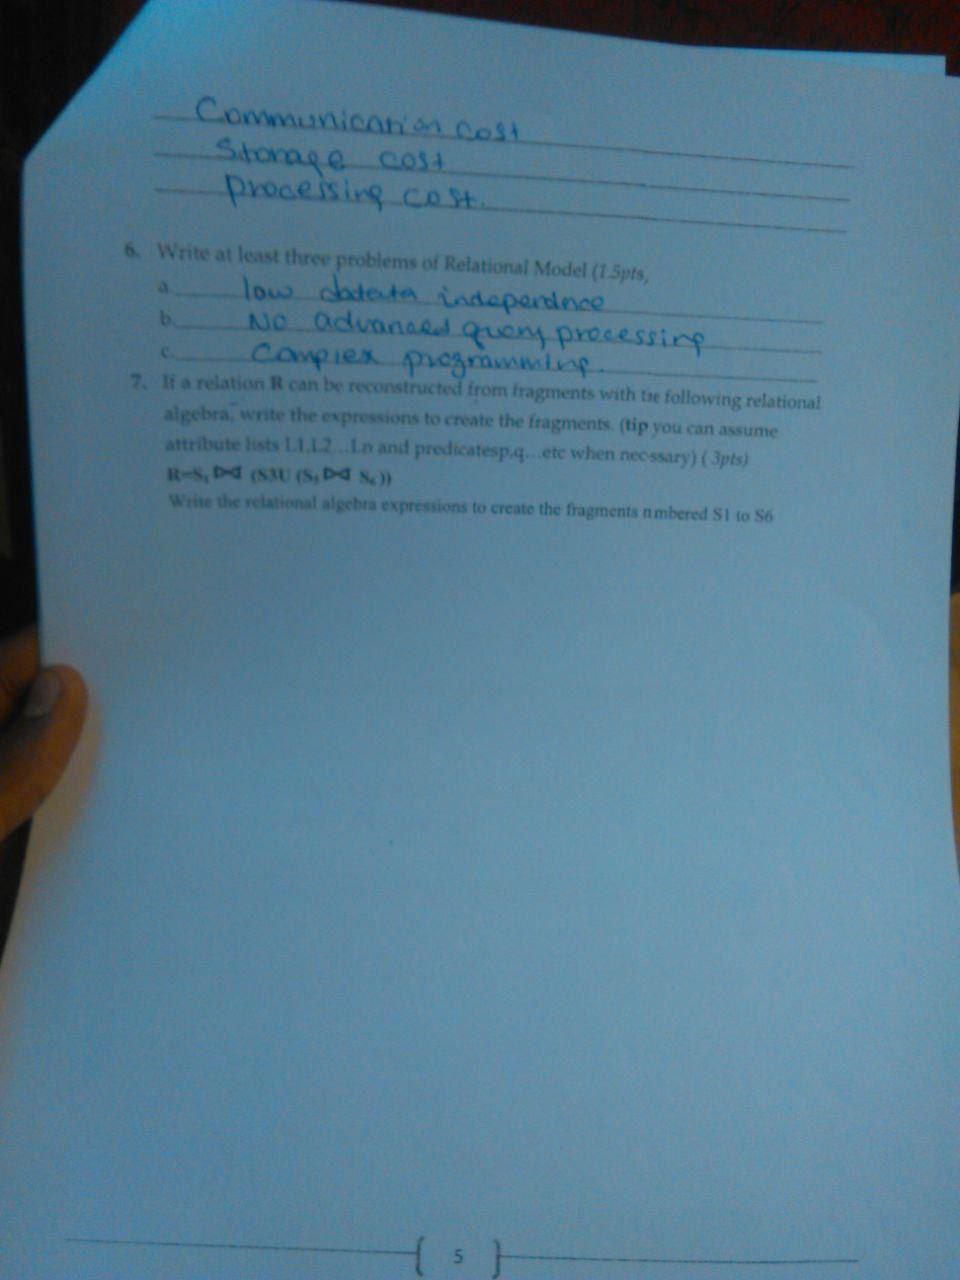 Communication cost
Storage cost
processing cost.
6. Write at least three problems of Relational Model (1.5pts,
a. low datata independnce
b. No advanced query processing
c. Complex programming.
7. If a relation R can be reconstructed from fragments with the following relational
algebra, write the expressions to create the fragments. (tip you can assume
attribute lists L1,L2...Ln and predicatesp,q...etc when necssary) ( 3pts)
R=S₁ ⋈ (S3U (S₅ ⋈ S₆))
Write the relational algebra expressions to create the fragments nmbered S1 to S6
5